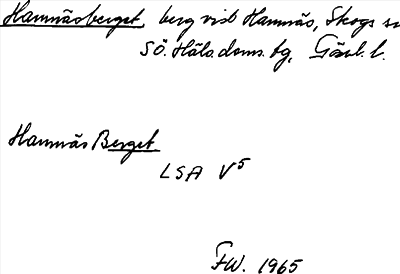 Hamnäsberget, berg vid Hamnäs, Skogs sn
SÖ. Häls. doms. tg, Gävl. l.
Hamnäs Berget
LSA V5
FW. 1965